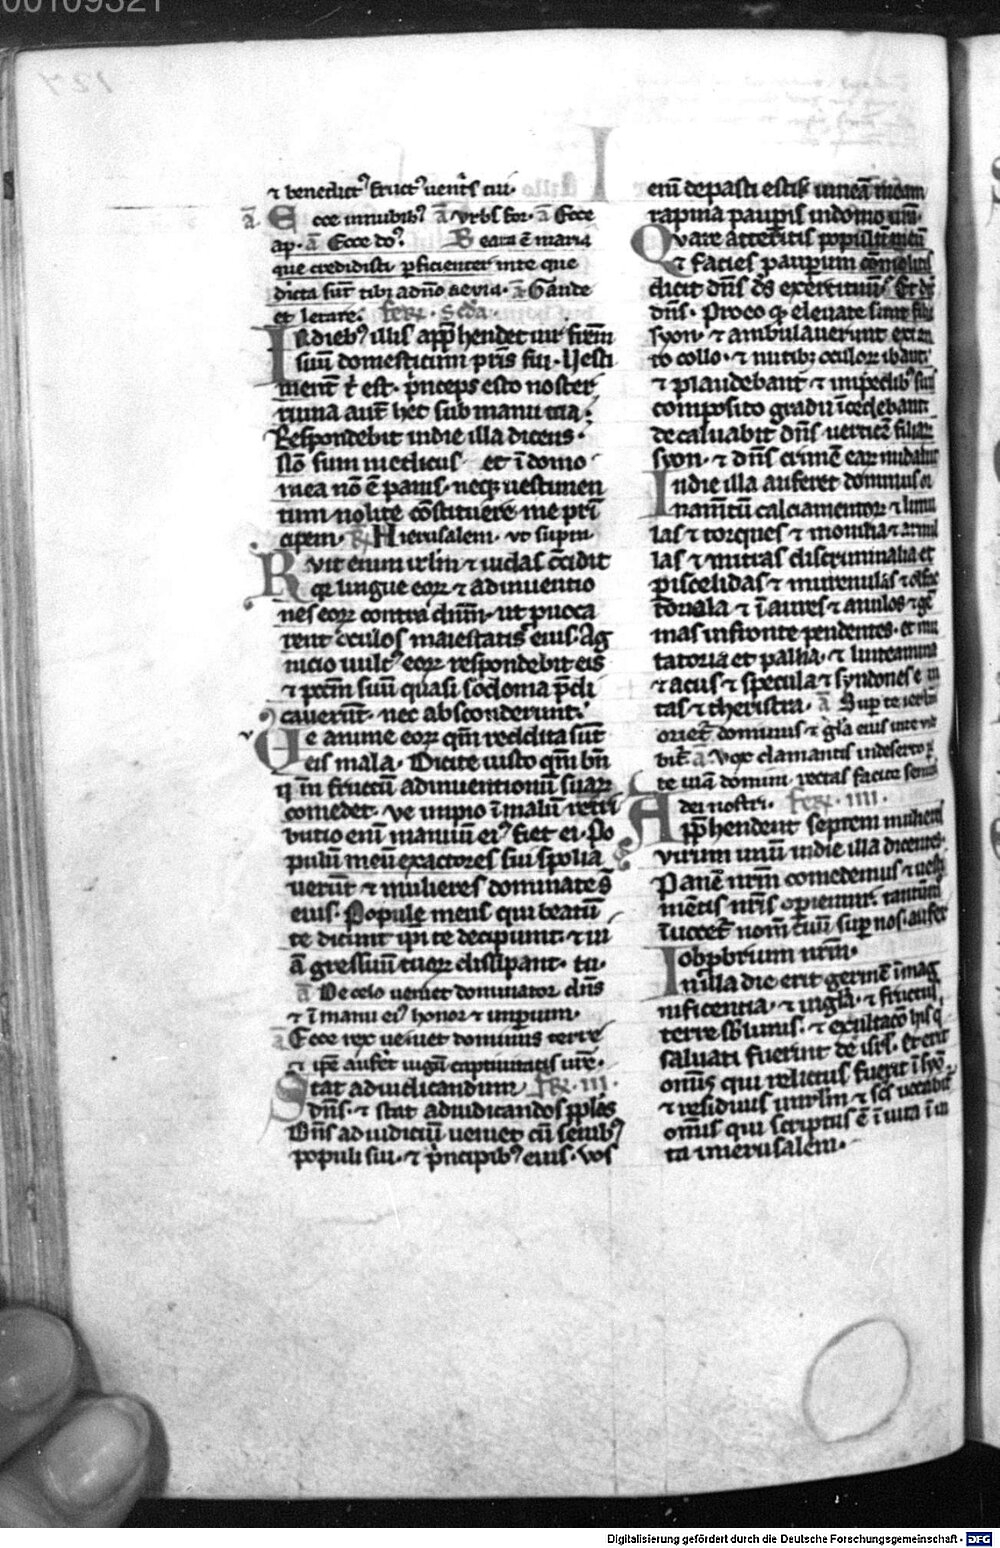 ⁊ benedict᾽ fruct᾽ uent̄s tui.
ā. Ecce innubib᾽ ā Vrbs for. ā Ecce
ap. ā Ecce do᾽. Beata ē maria
que credidisti ꝑficientet᷒ inte que
dicta sūt tibi adn̄o aevia. ā Gaude
et letare. ferͣ. Scd̄a.
In dieb᾽ illis app̄hendet uir fr̄em
suū domesticum pr̄is sui. Uesti
mentū t᷒ est. p̄nceps esto noster
ruina aut̄ hec sub manu tua.
Respondebit indie illa dicens.
Nō sum medicus et ī domo
mea nō ē panis. neqꝫ uestimen
tum nolite cōstituere me prī
cipem. R̄ Hierusalem. vt supra
Ruit enim irlm̄ ⁊ iudas cōcidit
qꝛ lingue eoꝝ ⁊ adinuentio
nes eoꝝ contra dn̄m. ut ꝓuoca
rent oculos maiestatis eius. Ag
nicio uult᾽ eoꝝ respondebit eis
⁊ pcc̄m suū quasi sodoma p̄di
cauerūt. nec absconderunt.
Ve anime eoꝝ qm̄ reddita sūt
eis mala. Dicite iusto qm̄ bn̄
qm̄ fructū adinuentionū suaꝝ
comedet. ve impio ī malū retri
butio enī manuū ei᾽ fiet ei. Po
pulū meū exactores sui spolia
uerūt ⁊ mulieres dominate sī
eius. Popule meus qui beatū
te dicunt ip̄i te decipiunt. ⁊ ui
ā gressuum tuoꝝ dissipant. tu.
ā De celo ueniet dominator dn̄s
⁊ ī manu ei᾽ honor ⁊ imꝑium.
ā Ecce rex ueniet dominus terre
⁊ ip̄e aufert iugū captiuitatis nr̄e.
Stat adiudicandum fer̄. III.
dn̄s. ⁊ stat adiudicandos pp̄los
Dn̄s adiudiciū ueniet cū senib᾽
populi sui. ⁊ p̄ncipib᾽ eius. vos
enī depasti estis uineā meam
rapina pauꝑis indomo ur̄a.
Quare atteritis populū meū
⁊ facies pauꝑum cōmolitis
dicit dn̄s ds̄ exercituū. Et dix̄
dn̄s. Proeo qꝫ eleuate sunt filie
syon. ⁊ ambulauerunt exten
to collo. ⁊ nutibꝫ oculoꝝ ibant.
⁊ plaudebant ⁊ inpedib᾽ suis
composito gradu īcedebant
decaluabit dn̄s uerticē filiaꝝ
syon. ⁊ dn̄s crinē eaꝝ nudabit
Indie illa auferet dominus or
namītū calciamentoꝝ ⁊ lunu
las ⁊ torques ⁊ monilia ⁊ armil
las ⁊ mitras discriminalia et
piscelidas ⁊ murenulas ⁊ olfac
toriala ⁊ īaures ⁊ anulos ⁊ gē
mas infronte pendentes. et mu
tatoria et pallia. ⁊ linteamina
⁊ acus ⁊ specula ⁊ syndones ⁊ ui
tas ⁊ theristra. ā Suꝑ te irlm̄
oriet᷒ dominus ⁊ gl̄a eius inte vide
bit᷒. ā Vox clamantis indeserto ꝑ
te uiā domini rectas facite semitas
dei nostri. ferͣ. IIII.
App̄hendent septem mulieres
virum unū indie illa dicentes.
Panē nr̄m comedemus ⁊ uesti
mētis nr̄is oꝑiemur. tantum
īuocet᷒ nom̄ tuū suꝑ nos. aufer
obꝓbrium nr̄m.
In illa die erit germē ī mag
nificentia. ⁊ ingl̄a. ⁊ fructus
terre sblimis. ⁊ exultaco his q
saluati fuerint de isrl. Et erit
omīs qui relictus fuerit ī syō
⁊ residuus inirlm̄ ⁊ sc̄s uocabit᷒
omīs qui scriptus ē ī uita ī in
ta inierusalem.
Digitalisierung gefördert durch die Deutsche Forschungsgemeinschaft - DFG